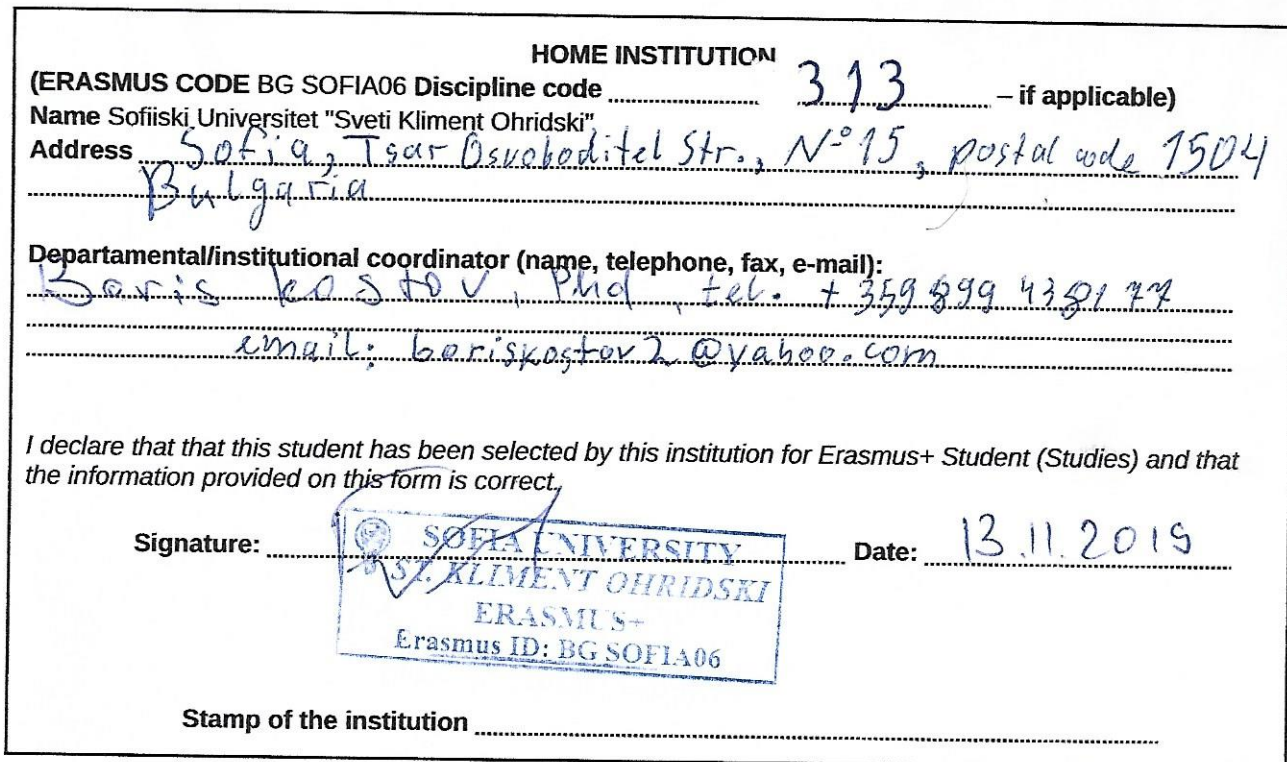 HOME INSTITUTION
(ERASMUS CODE BG SOFIA06 Discipline code 313 – if applicable)
Name Sofiiski Universitet "Sveti Kliment Ohridski"
Address Sofia, Tsar Osvoboditel Str., Nº 15, postal code 1504
Bulgaria
Departamental/institutional coordinator (name, telephone, fax, e-mail):
Boris Kostov, Phd, tel. + 359 899 438177
email: boriskostov2@yahoo.com
I declare that that this student has been selected by this institution for Erasmus+ Student (Studies) and that
the information provided on this form is correct.
Signature:
SOFIA UNIVERSITY
ST. KLIMENT OHRIDSKI
ERASMUS+
Erasmus ID: BG SOFIA06
Date: 13.11.2019
Stamp of the institution